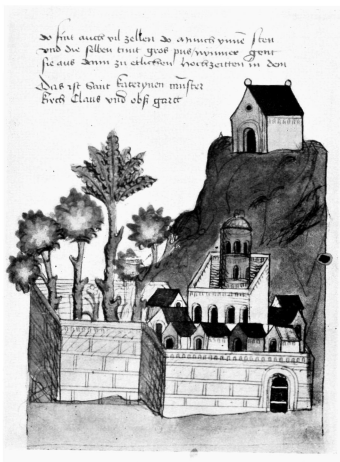 do sint auch vil zellen do münch ynne sten
vnd die selben tunt gros pus gent
sie aus denn zu etlichen hochzeitten in dem
Das ist Sant katerynen munster
kirch Claus vnd obs gart